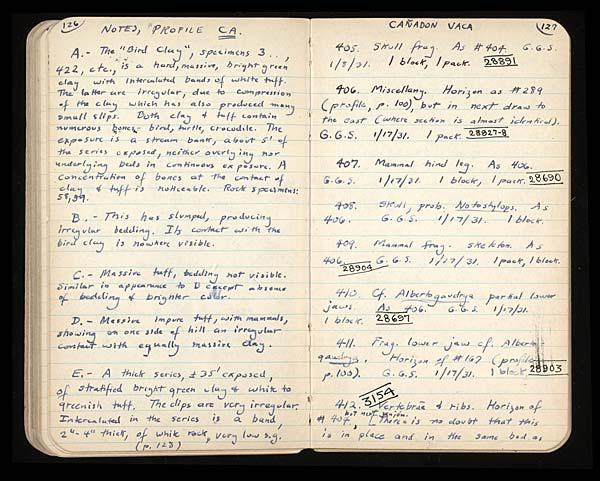 126
NOTES, "PROFILE CA.
A.- The "Bird Clay", specimens 3..,
422, etc., is a hard, massive, bright green
clay with intercalated bands of white tuff.
The latter are irregular, due to compression
of the clay which has also produced many
small slips. Both clay & tuff contain
numerous bones - bird, turtle, crocodile. The
exposure is a stream bank, about 5' of
the series exposed, neither overlying nor
underlying beds in continuous exposure. A
concentration of bones at the contact of
clay & tuff is noticeable. Rock specimens:
58, 59.
B.- This has slumped, producing
irregular bedding. Its contact with the
bird clay is nowhere visible.
C.- Massive tuff, bedding not visible.
Similar in appearance to D except absence
of bedding & brighter color.
D.- Massive impure tuff, with mammals,
showing on one side of hill an irregular
contact with equally massive clay.
E.- A thick series, ± 35' exposed,
of stratified bright green clay & white to
greenish tuff. The dips are very irregular.
Intercalated in the series is a band,
2"-4" thick, of white rock, very low s.g.
(p. 123)
CAÑADON VACA
127
405. Skull frag. As #404. G.G.S.
1/8/31. 1 block, 1 pack. 28891
406. Miscellany. Horizon as #289
(profile, p. 100), but in next draw to
the east (where section is almost identical).
G.G.S. 1/17/31. 1 pack. 28827-8
407. Mammal hind leg. As 406.
G.G.S. 1/17/31. 1 block, 1 pack. 28690
408. Skull, prob. Notostylops. As
406. G.G.S. 1/17/31. 1 block.
409. Mammal frag. skeleton. As
406. G.G.S. 1/17/31. 1 pack, 1 block.
28904
410. Cf. Albertogaudrya partial lower
jaws. As 406. G.G.S. 1/17/31.
1 block. 28697
411. Frag. lower jaw cf. Alberto-
gaudrya. Horizon of #167 (profile
p. 100). G.G.S. 1/17/31. 1 block 28903
3154
412. Vertebrae & ribs. Horizon of
# 404, [There is no doubt that this
is in place and in the same bed as